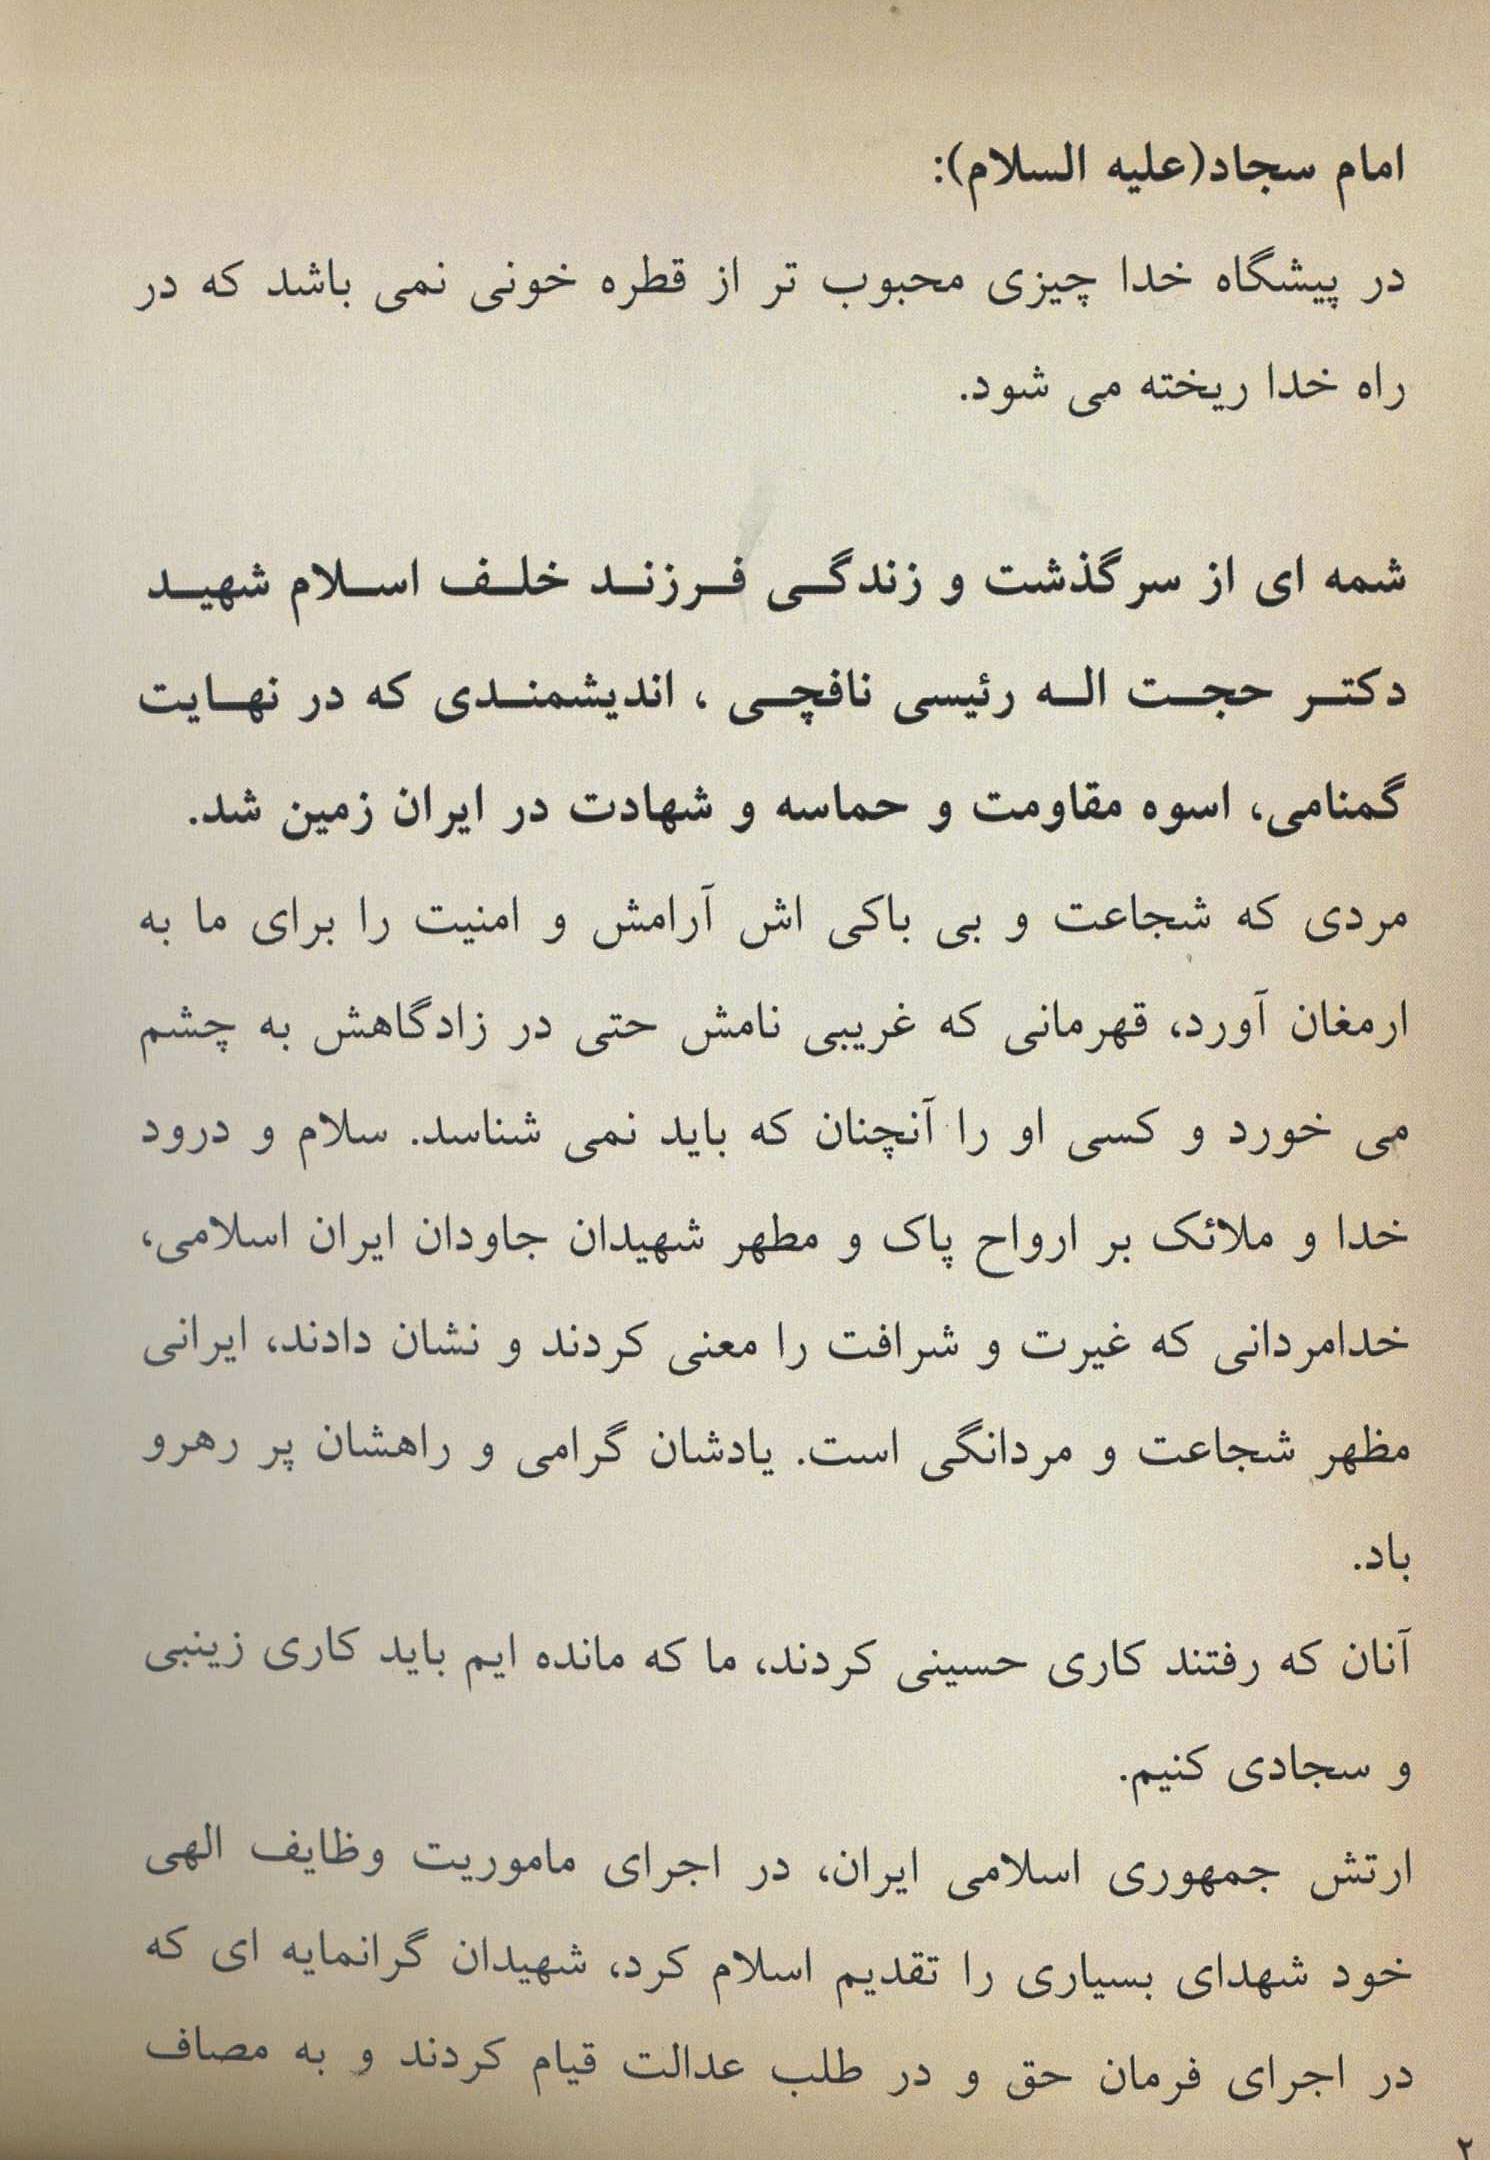 امام سجاد(علیه السلام):
در پیشگاه خدا چیزی محبوب تر از قطره خونی نمی باشد که در
راه خدا ریخته می شود.
شمه ای از سرگذشت و زندگی فرزند خلف اسلام شهید
دکتر حجت اله رئیسی نافچی ، اندیشمندی که در نهایت
گمنامی، اسوه مقاومت و حماسه و شهادت در ایران زمین شد.
مردی که شجاعت و بی باکی اش آرامش و امنیت را برای ما به
ارمغان آورد، قهرمانی که غریبی نامش حتی در زادگاهش به چشم
می خورد و کسی او را آنچنان که باید نمی شناسد. سلام و درود
خدا و ملائک بر ارواح پاک و مطهر شهیدان جاودان ایران اسلامی،
خدامردانی که غیرت و شرافت را معنی کردند و نشان دادند، ایرانی
مظهر شجاعت و مردانگی است. یادشان گرامی و راهشان پر رهرو
باد.
آنان که رفتند کاری حسینی کردند، ما که مانده ایم باید کاری زینبی
و سجادی کنیم.
ارتش جمهوری اسلامی ایران، در اجرای ماموریت وظایف الهی
خود شهدای بسیاری را تقدیم اسلام کرد، شهیدان گرانمایه ای که
در اجرای فرمان حق و در طلب عدالت قیام کردند و به مصاف
۲